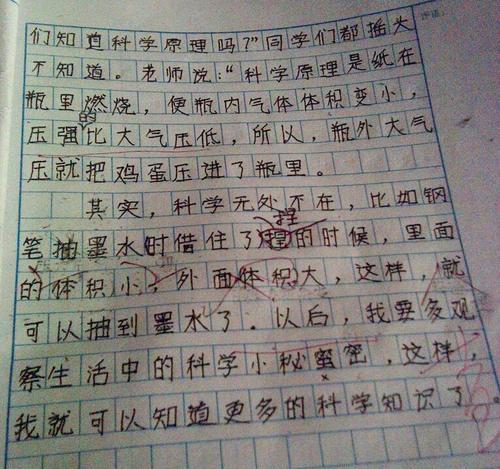 们知道科学原理吗?"同学们都摇头
不知道。老师说:"科学原理是纸在
瓶里燃烧,使瓶内气体体积变小,
压强的比大气压低,所以,瓶外大气
压就把鸡蛋压进了瓶里。
其实,科学无处不在,比如钢
笔抽墨水时借住了捏的时候,里面
的体积小,外面体积大,这样,就
可以抽到墨水了。以后,我要多观
察生活中的科学小秘蜜密,这样,
我就可以知道更多的科学知识了。